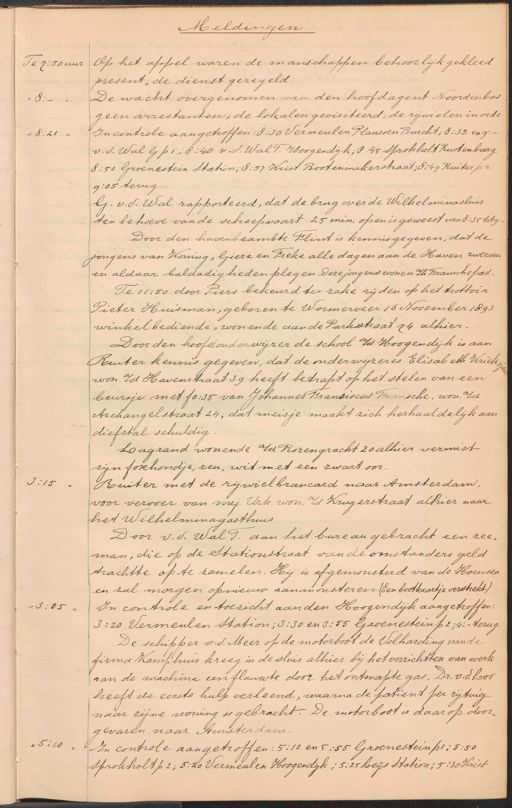 Meldingen
Te 7:50 uur Op het appel waren de manschappen behoorlijk gekleed
present, de dienst geregeld
" 8:- " De wacht overgenomen van den hoofdagent Noordenbos
geen arrestanten, de lokalen gevisiteerd, de rijwielen in orde
" 8:21 " In controle aangetroffen 8:30 Vermeulen Planssen Burcht; 8:35 en 9:-
v.d. Wal G. p 1; 8:40 v.d. Wal T. Hoogendyk; 8:45 Sprokholt Rustenburg
8:50 Groenestein Station; 8:57 Krist Bootenmakerstraat; 8:49 Ruiter p 2
9:05 terug.
G. v.d. Wal rapporteerd, dat de brug over de Wilhelminasluis
ten behoeve van de scheepvaart 25 min. open is geweest van 8:35 tot 9:-
Door den havenbeambte Flint is kennisgegeven, dat de
jongens van Koning, Gjere en Freke alle dagen aan de Haven zwerven
en aldaar baldadigheden plegen Deze jongens wonen a/h Franschepad.
Te 11:50 door Piers bekeurd ter zake rijden op het trottoir
Pieter Huisman, geboren te Wormerveer 16 November 1893
winkelbediende, wonende aan de Parkstraat 24 alhier.
Door den hoofdonderwijzer de school a/d Hoogendyk is aan
Ruiter kennis gegeven, dat de onderwijzeres Elisabeth
won. a/d Havenstraat 39 heeft betrapt op het stelen van een
beursje met f 0:35 van Johannes Franciscus Fransche, won. a/d
Archangelstraat 24, dat meisje maakt zich herhaaldelijk aan
diefstal schuldig.
Lagrand wonende a/d Rozengracht 20 alhier vermist
zijn foxhondje, reu, wit met een zwart oor.
3:15 " Ruiter met de rijwielbrancard naar Amsterdam.
voor vervoer van mej. won. a/d Krugerstraat alhier naar
het Wilhelminagasthuis.
Door v.d. Wal T. aan het bureau gebracht een zee-
man, die op de Stationstraat van de omstanders geld
trachtte op te zamelen. Hij is afgemonsterd van de
en zal morgen opnieuw aanmonsteren (Een bootkaartje verstrekt)
" 3:05 " In controle en toezicht aan den Hoogendijk aangetroffen:
3:20 Vermeulen Station; 3:30 en 3:55 Groenestein p 2; 4:- terug.
De schipper v.d. Meer op de motorboot de Volharding van de
firma Kamphuis kreeg in de sluis alhier bij het verrichten van werk
aan de machine een flauwte door het ontsnapte gas. Dr. v.d. Loo
heeft de eerste hulp verleend, waarna de patient per rijtuig
naar zijne woning is gebracht. De motorboot is daarop door-
gevaren naar Amsterdam.
" 5:10 " In controle aangetroffen: 5:12 en 5:55 Groenestein p 1; 5:50
Sprokholt p 2; 5:20 Vermeulen Hoogendijk; 5:25 Leijs Station; 5:30 Krist